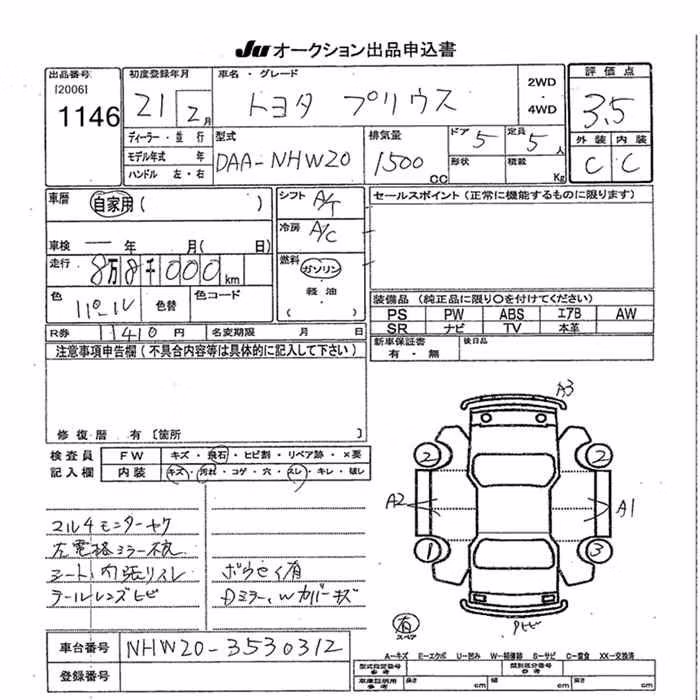 JU オークション出品申込書
出品番号
[2006]
1146
初度登録年月
21 2月
車名・グレード
トヨタ プリウス
2WD
・
4WD
評価点
3.5
外装 内装
C C
ディーラー・並行
モデル年式 年
ハンドル 左・右
型式
DAA-NHW20
排気量
1500 CC
ドア 5
定員 5 人
形状
積載 Kg
車歴
自家用 ( )
車検 — 年 月( 日)
走行
8万8千000 km
色
色替
色コード
R券 11410 円 名変期限 月 日
シフト A/T
冷房 A/C
燃料
ガソリン
軽油
( )
セールスポイント (正常に機能するものに限ります)
装備品 (純正品に限り○を付けてください)
PS PW ABS エアB AW
SR ナビ TV 本革
新車保証書
有・無
後日品
注意事項申告欄 (不具合内容等は具体的に記入して下さい)
修復歴 有 〔箇所 〕
検査員
記入欄
FW キズ・飛石・ヒビ割・リペア跡・×要
内装 キズ・汚れ・コゲ・穴・スレ・キレ・破レ
マルチモニターヤケ
左電格ミラー不良
シート、内張りスレ
テールレンズヒビ
ボウセイ有
Dミラー、Wカバーキズ
A3
2 2
A2 A1
1 3
有
スペア
Rヒビ
車台番号 NHW20-3530312
登録番号
A-キズ E-エクボ U-凹み W-補修跡 S-サビ C-腐食 XX-交換済
型式指定番号
参考
類別区分番号
参考
車庫証明用
参考
長さ cm
幅 cm
高さ cm